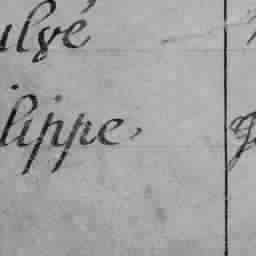 ulgé
ilippe,